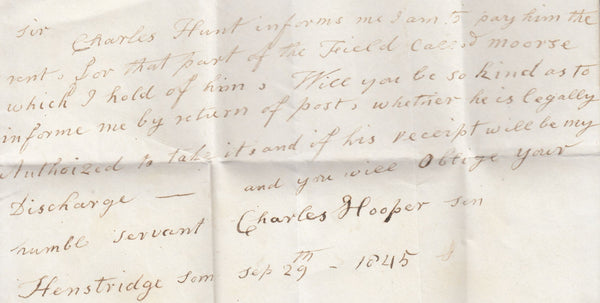 Sir Charles Hunt informs me I am to pay him the
rent, for that part of the Field Called moorse
which I hold of him, Will you be so kind as to
informe me by return of post, whether he is legally
Authorized to take it, and if his receipt will be my
Discharge — and you will Oblige your
humbl servant Charles Hooper sen
Henstridge Som Sep 29th - 1845